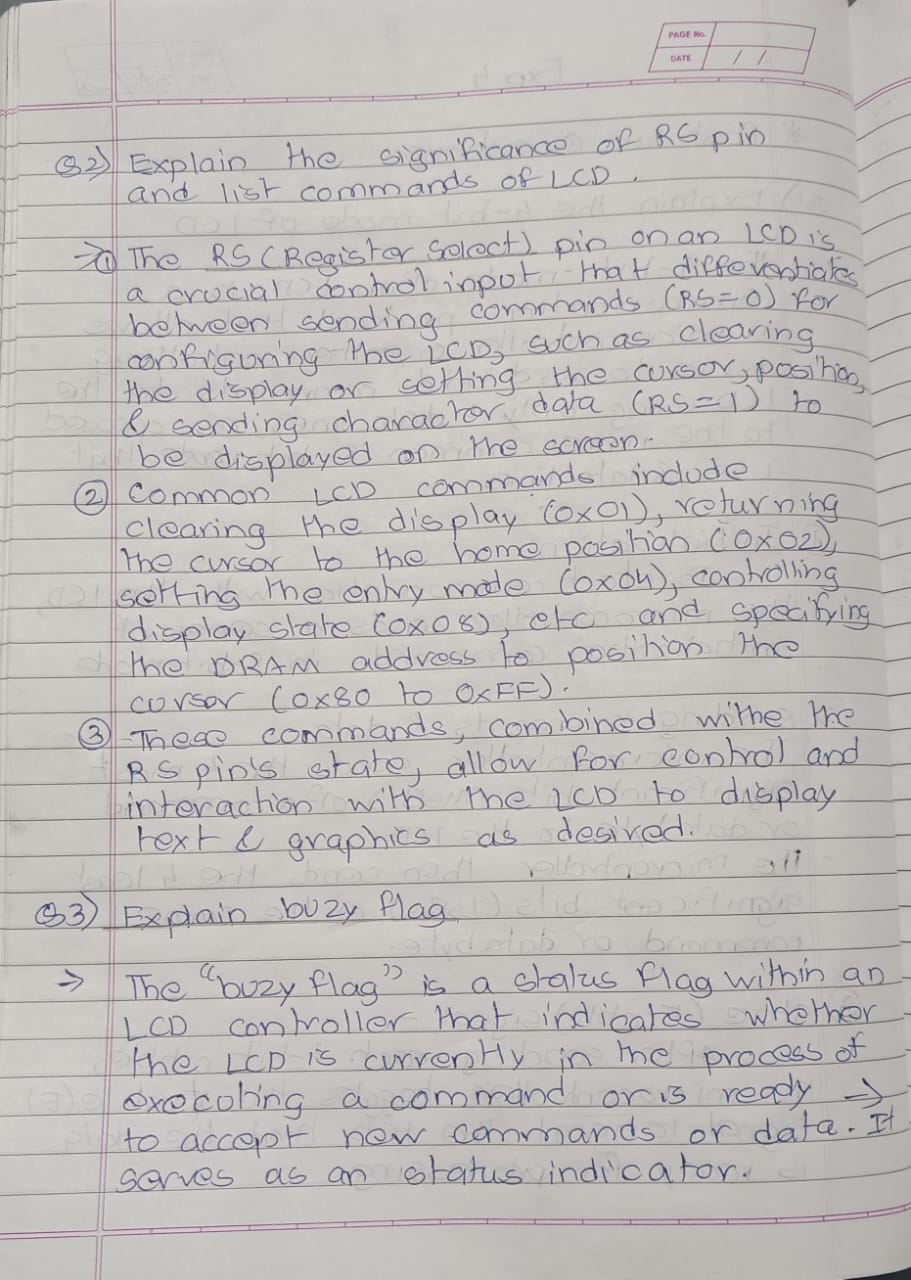 PAGE No.
DATE / /
Q2) Explain the significance of RS pin
and list commands of LCD.
→ ① The RS (Register Select) pin on an LCD is
a crucial control input that differentiates
between sending commands (RS=0) for
configuring the LCD, such as clearing
the display or setting the cursor, position,
& sending character data (RS=1) to
be displayed on the screen.
② Common LCD commands include
clearing the display (0x01), returning
the cursor to the home position (0x02),
setting the entry mode (0x04), controlling
display state (0x08), etc and specifying
the DRAM address to position the
cursor (0x80 to 0xFF).
③ These commands, combined withe the
RS pin's state, allow for control and
interaction with the LCD to display
text & graphics as desired.
Q3) Explain buzy flag.
→ The "buzy flag" is a status flag within an
LCD controller that indicates whether
the LCD is currently in the process of
executing a command or is ready →
to accept new commands or data. It
serves as an status indicator.